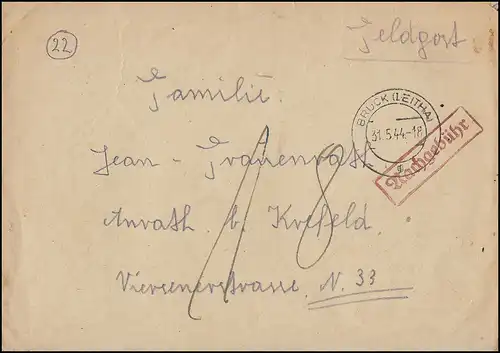 22
Feldpost
BRUCK (LEITHA)
31.5.44.-18
g
Nachgebühr
Familie.
Jean - Trauenrath
18
Anrath b. Krefeld
Viersenerstrasse. N. 33